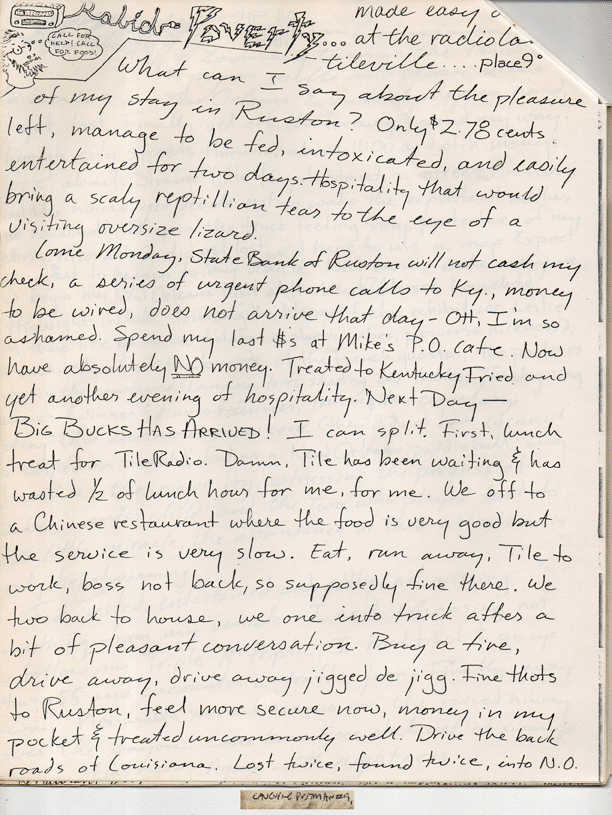 Rabid Poverty... made easy
at the radiola
tileville.... place9°
CALL FOR
HELP! CALL
FOR FOOD!
What can I say about the pleasure
of my stay in Ruston? Only $2.78 cents
left, manage to be fed, intoxicated, and easily
entertained for two days. Hospitality that would
bring a scaly reptillian tear to the eye of a
visiting oversize lizard.
Come Monday, State Bank of Ruston will not cash my
check, a series of urgent phone calls to Ky., money
to be wired, does not arrive that day - OH, I'm so
ashamed. Spend my last $s at Mike's P.O. cafe. Now
have absolutely NO money. Treated to Kentucky Fried and
yet another evening of hospitality. Next Day—
BIG BUCKS HAS ARRIVED! I can split. First, lunch
treat for TileRadio. Damn, Tile has been waiting & has
wasted ½ of lunch hour for me, for me. We off to
a Chinese restaurant where the food is very good but
the service is very slow. Eat, run away, Tile to
work, boss not back, so supposedly fine there. We
two back to house, we one into truck after a
bit of pleasant conversation. Buy a tire,
drive away, drive away jigged de jigg. Fine thots
to Ruston, feel more secure now, money in my
pocket & treated uncommonly well. Drive the back
roads of Louisiana. Lost twice, found twice, into N.O.